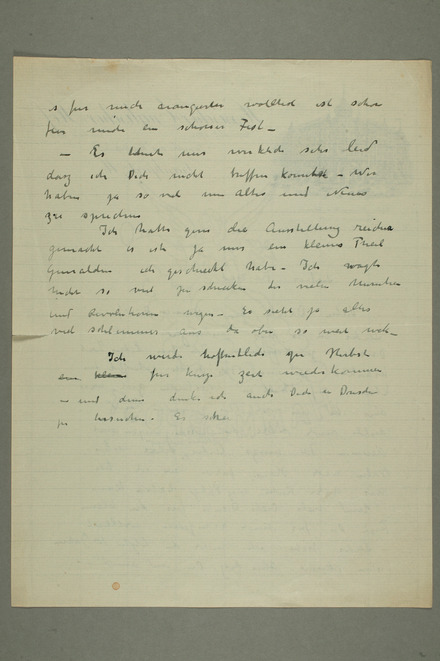 s für mich arrangierte
ist schon
für mich ein schönes Fest –
– Es tut mir wirklich sehr leid
dasz ich Dich nicht treffen konnte – Wir
haben ja so viel um altes und Neues
zu sprechen
Ich hätte gern die Ausstellung reicher
gemacht es ist ja nur ein kleiner Theil
Gemälden ich geschickt habe – Ich wagte
nicht so viel zu schicken der vielen Unruhen
und Revolutionen wegen – Es sieht ja alles
viel schlimmer aus da oben so weit weg –
Ich werde hoffentlich zu Herbst
für kurze Zeit wiederkommen
– und dann denke ich auch Dich in Dresden
zu besuchen. Es